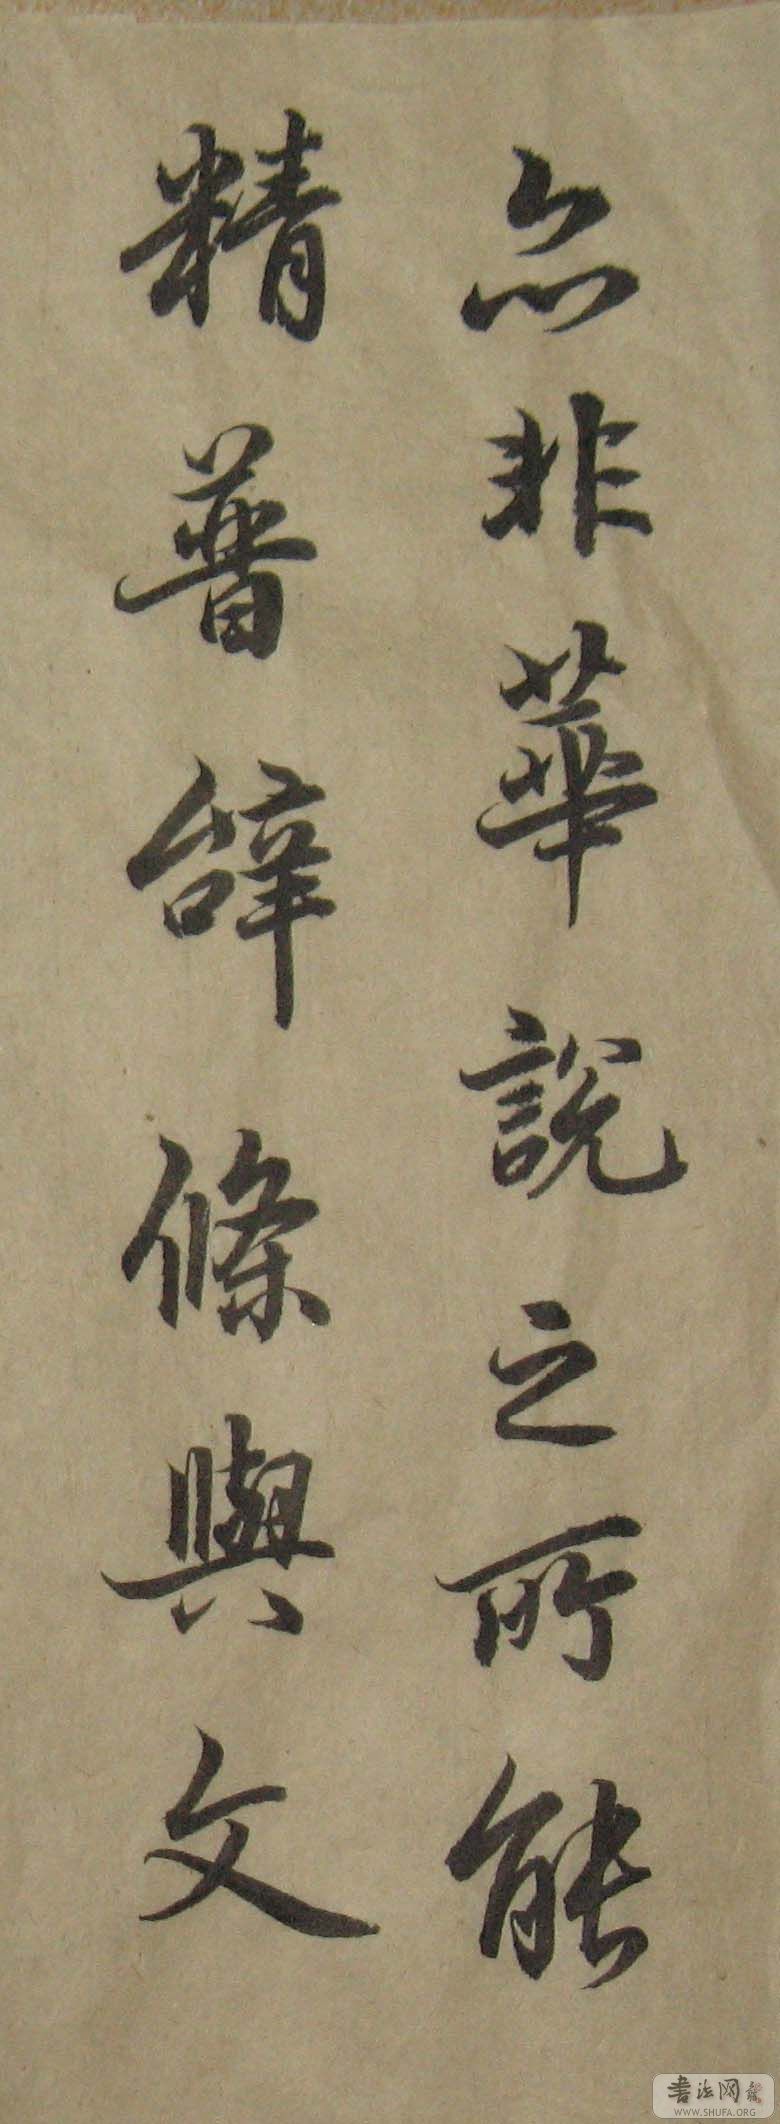 亦非華說之所能
精普辭條與文
書法网
WWW.SHUFA.ORG